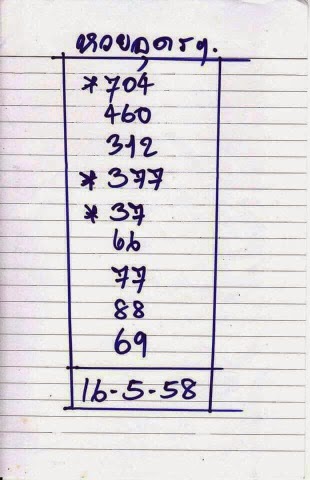 หวยอุดรฯ.
*704
460
312
*377
*37
66
77
88
69
16-5-58